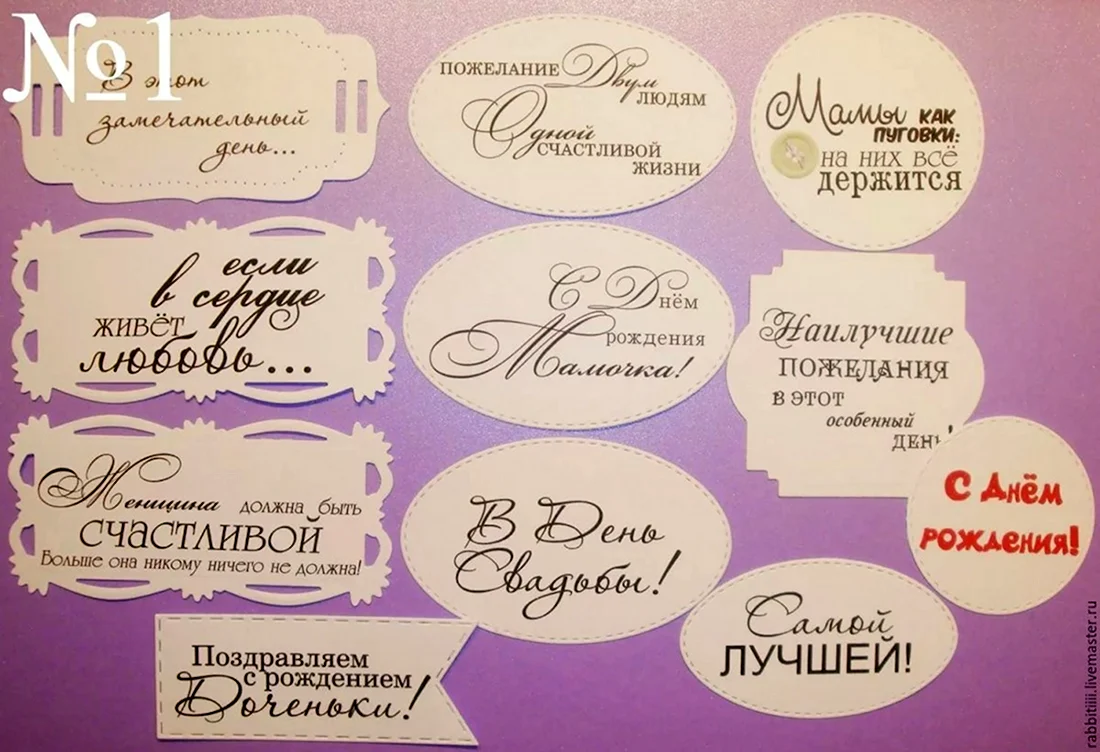 №1
В этот
замечательный
день...
ПОЖЕЛАНИЕ Двум
ЛЮДЯМ
Одной
СЧАСТЛИВОЙ
ЖИЗНИ
Мамы КАК
ПУГОВКИ:
на них всё
держится
если
в сердце
ЖИВЁТ
любовь...
С Днём
рождения
Мамочка!
Наилучшие
ПОЖЕЛАНИЯ
В ЭТОТ
особенный
ДЕНЬ
Женщина ДОЛЖНА БЫТЬ
СЧАСТЛИВОЙ
Больше она никому ничего не должна!
В День
Свадьбы!
С Днём
рождения!
Самой
ЛУЧШЕЙ!
Поздравляем
с рождением
Доченьки!
rabbitiiii.livemaster.ru